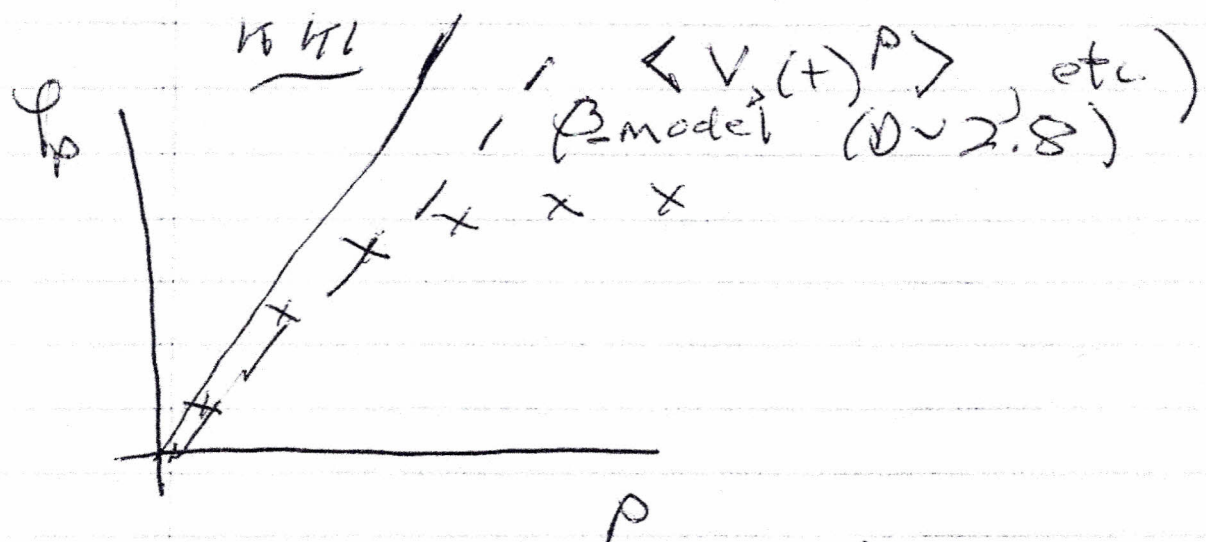 K41
< V(t)^p >, etc.)
β-model (D~2.8)
ζ_p
p